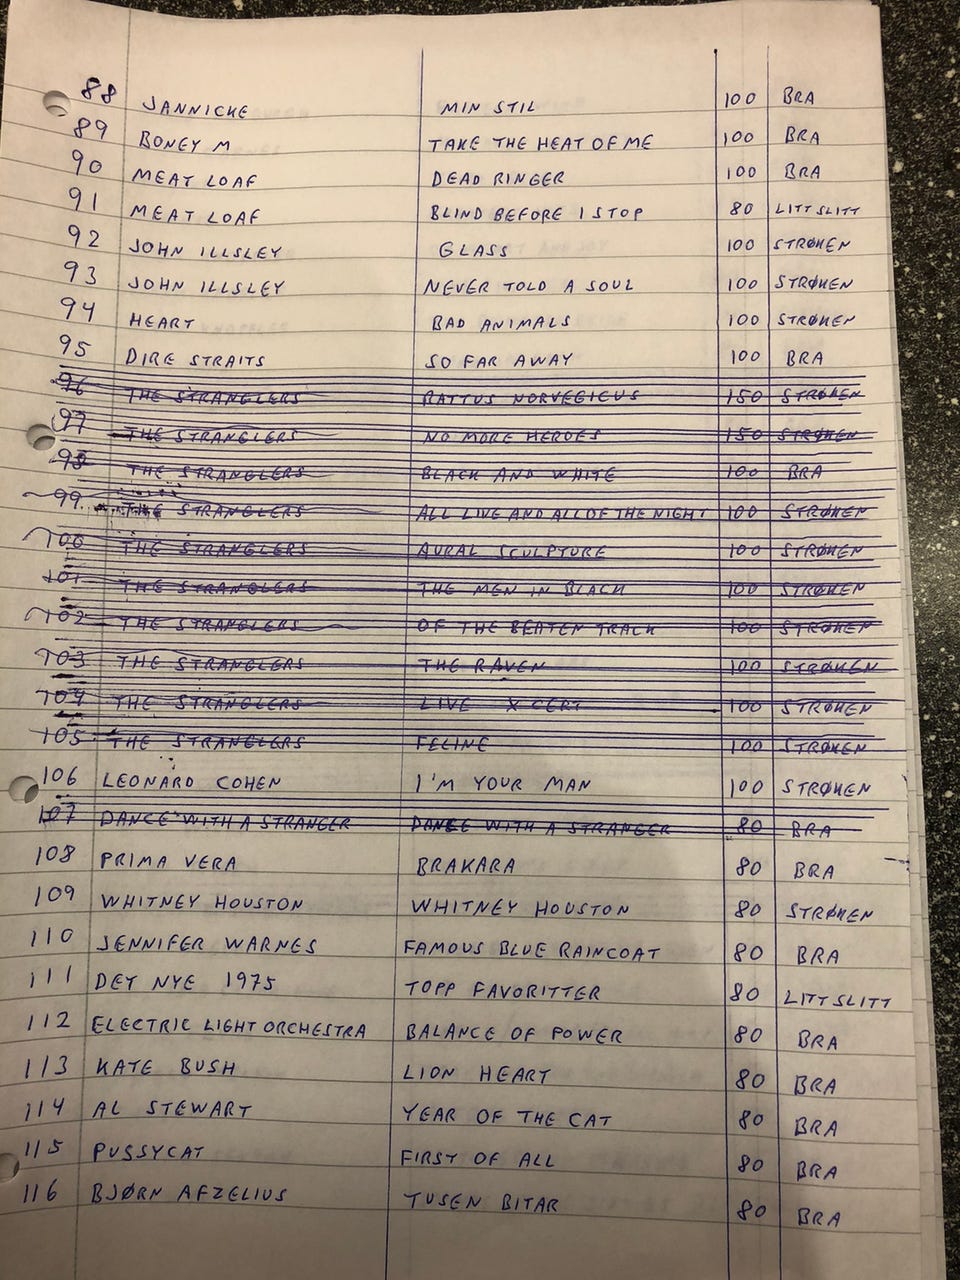 88 JANNICKE MIN STIL 100 BRA
89 BONEY M TAKE THE HEAT OF ME 100 BRA
90 MEAT LOAF DEAD RINGER 100 BRA
91 MEAT LOAF BLIND BEFORE I STOP 80 LITT SLITT
92 JOHN ILLSLEY GLASS 100 STRØKEN
93 JOHN ILLSLEY NEVER TOLD A SOUL 100 STRØKEN
94 HEART BAD ANIMALS 100 STRØKEN
95 DIRE STRAITS SO FAR AWAY 100 BRA
96 THE STRANGLERS RATTUS NORVEGICUS 150 STRØKEN
97 THE STRANGLERS NO MORE HEROES 150 STRØKEN
98 THE STRANGLERS BLACK AND WHITE 100 BRA
99 THE STRANGLERS ALL LIVE AND ALL OF THE NIGHT 100 STRØKEN
100 THE STRANGLERS AURAL SCULPTURE 100 STRØKEN
101 THE STRANGLERS THE MEN IN BLACK 100 STRØKEN
102 THE STRANGLERS OF THE BEATEN TRACK 100 STRØKEN
103 THE STRANGLERS THE RAVEN 100 STRØKEN
104 THE STRANGLERS LIVE X CERT 100 STRØKEN
105 THE STRANGLERS FELINE 100 STRØKEN
106 LEONARD COHEN I'M YOUR MAN 100 STRØKEN
107 DANCE WITH A STRANGER DANCE WITH A STRANGER 80 BRA
108 PRIMA VERA BRAKARA 80 BRA
109 WHITNEY HOUSTON WHITNEY HOUSTON 80 STRØKEN
110 JENNIFER WARNES FAMOUS BLUE RAINCOAT 80 BRA
111 DET NYE 1975 TOPP FAVORITTER 80 LITT SLITT
112 ELECTRIC LIGHT ORCHESTRA BALANCE OF POWER 80 BRA
113 KATE BUSH LION HEART 80 BRA
114 AL STEWART YEAR OF THE CAT 80 BRA
115 PUSSYCAT FIRST OF ALL 80 BRA
116 BJØRN AFZELIUS TUSEN BITAR 80 BRA